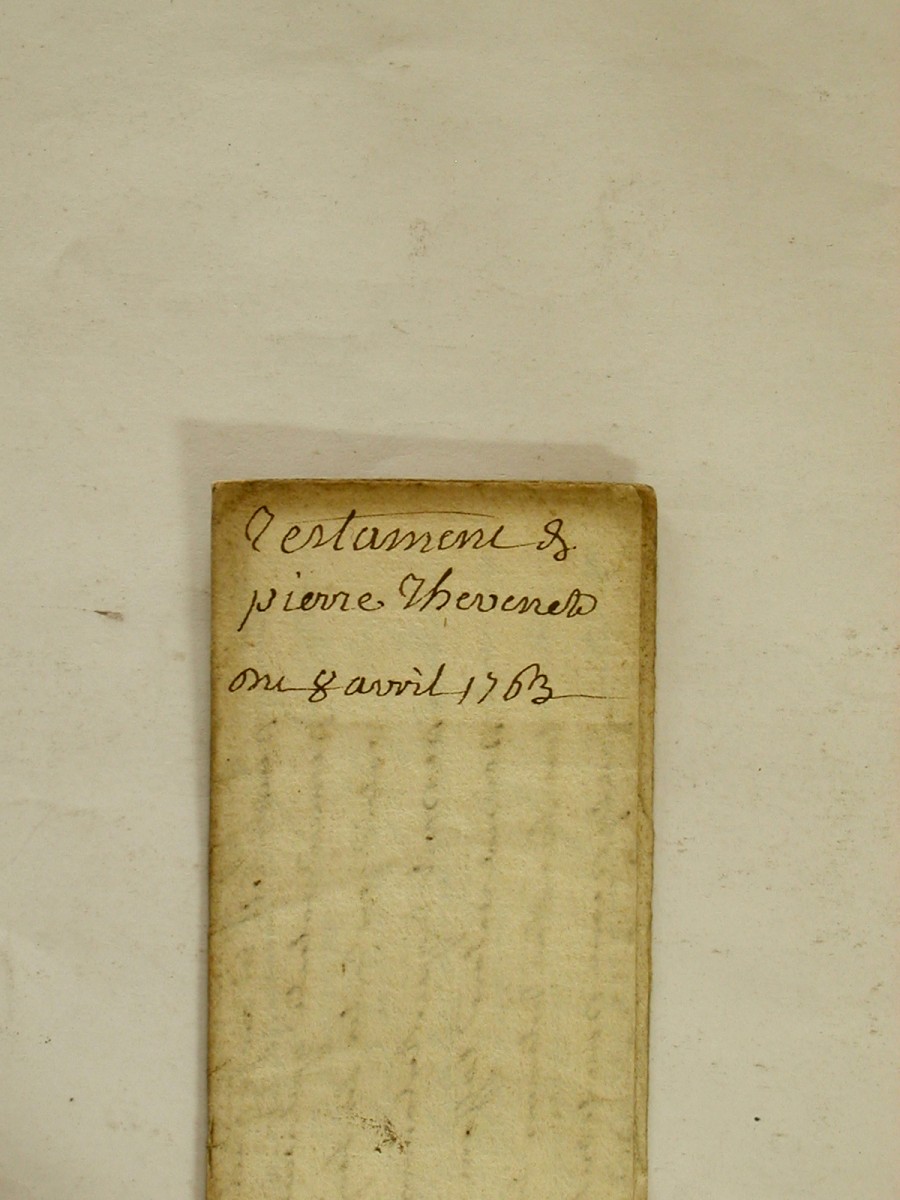 Testament de
pierre Thevenet
Du 8 avril 1763